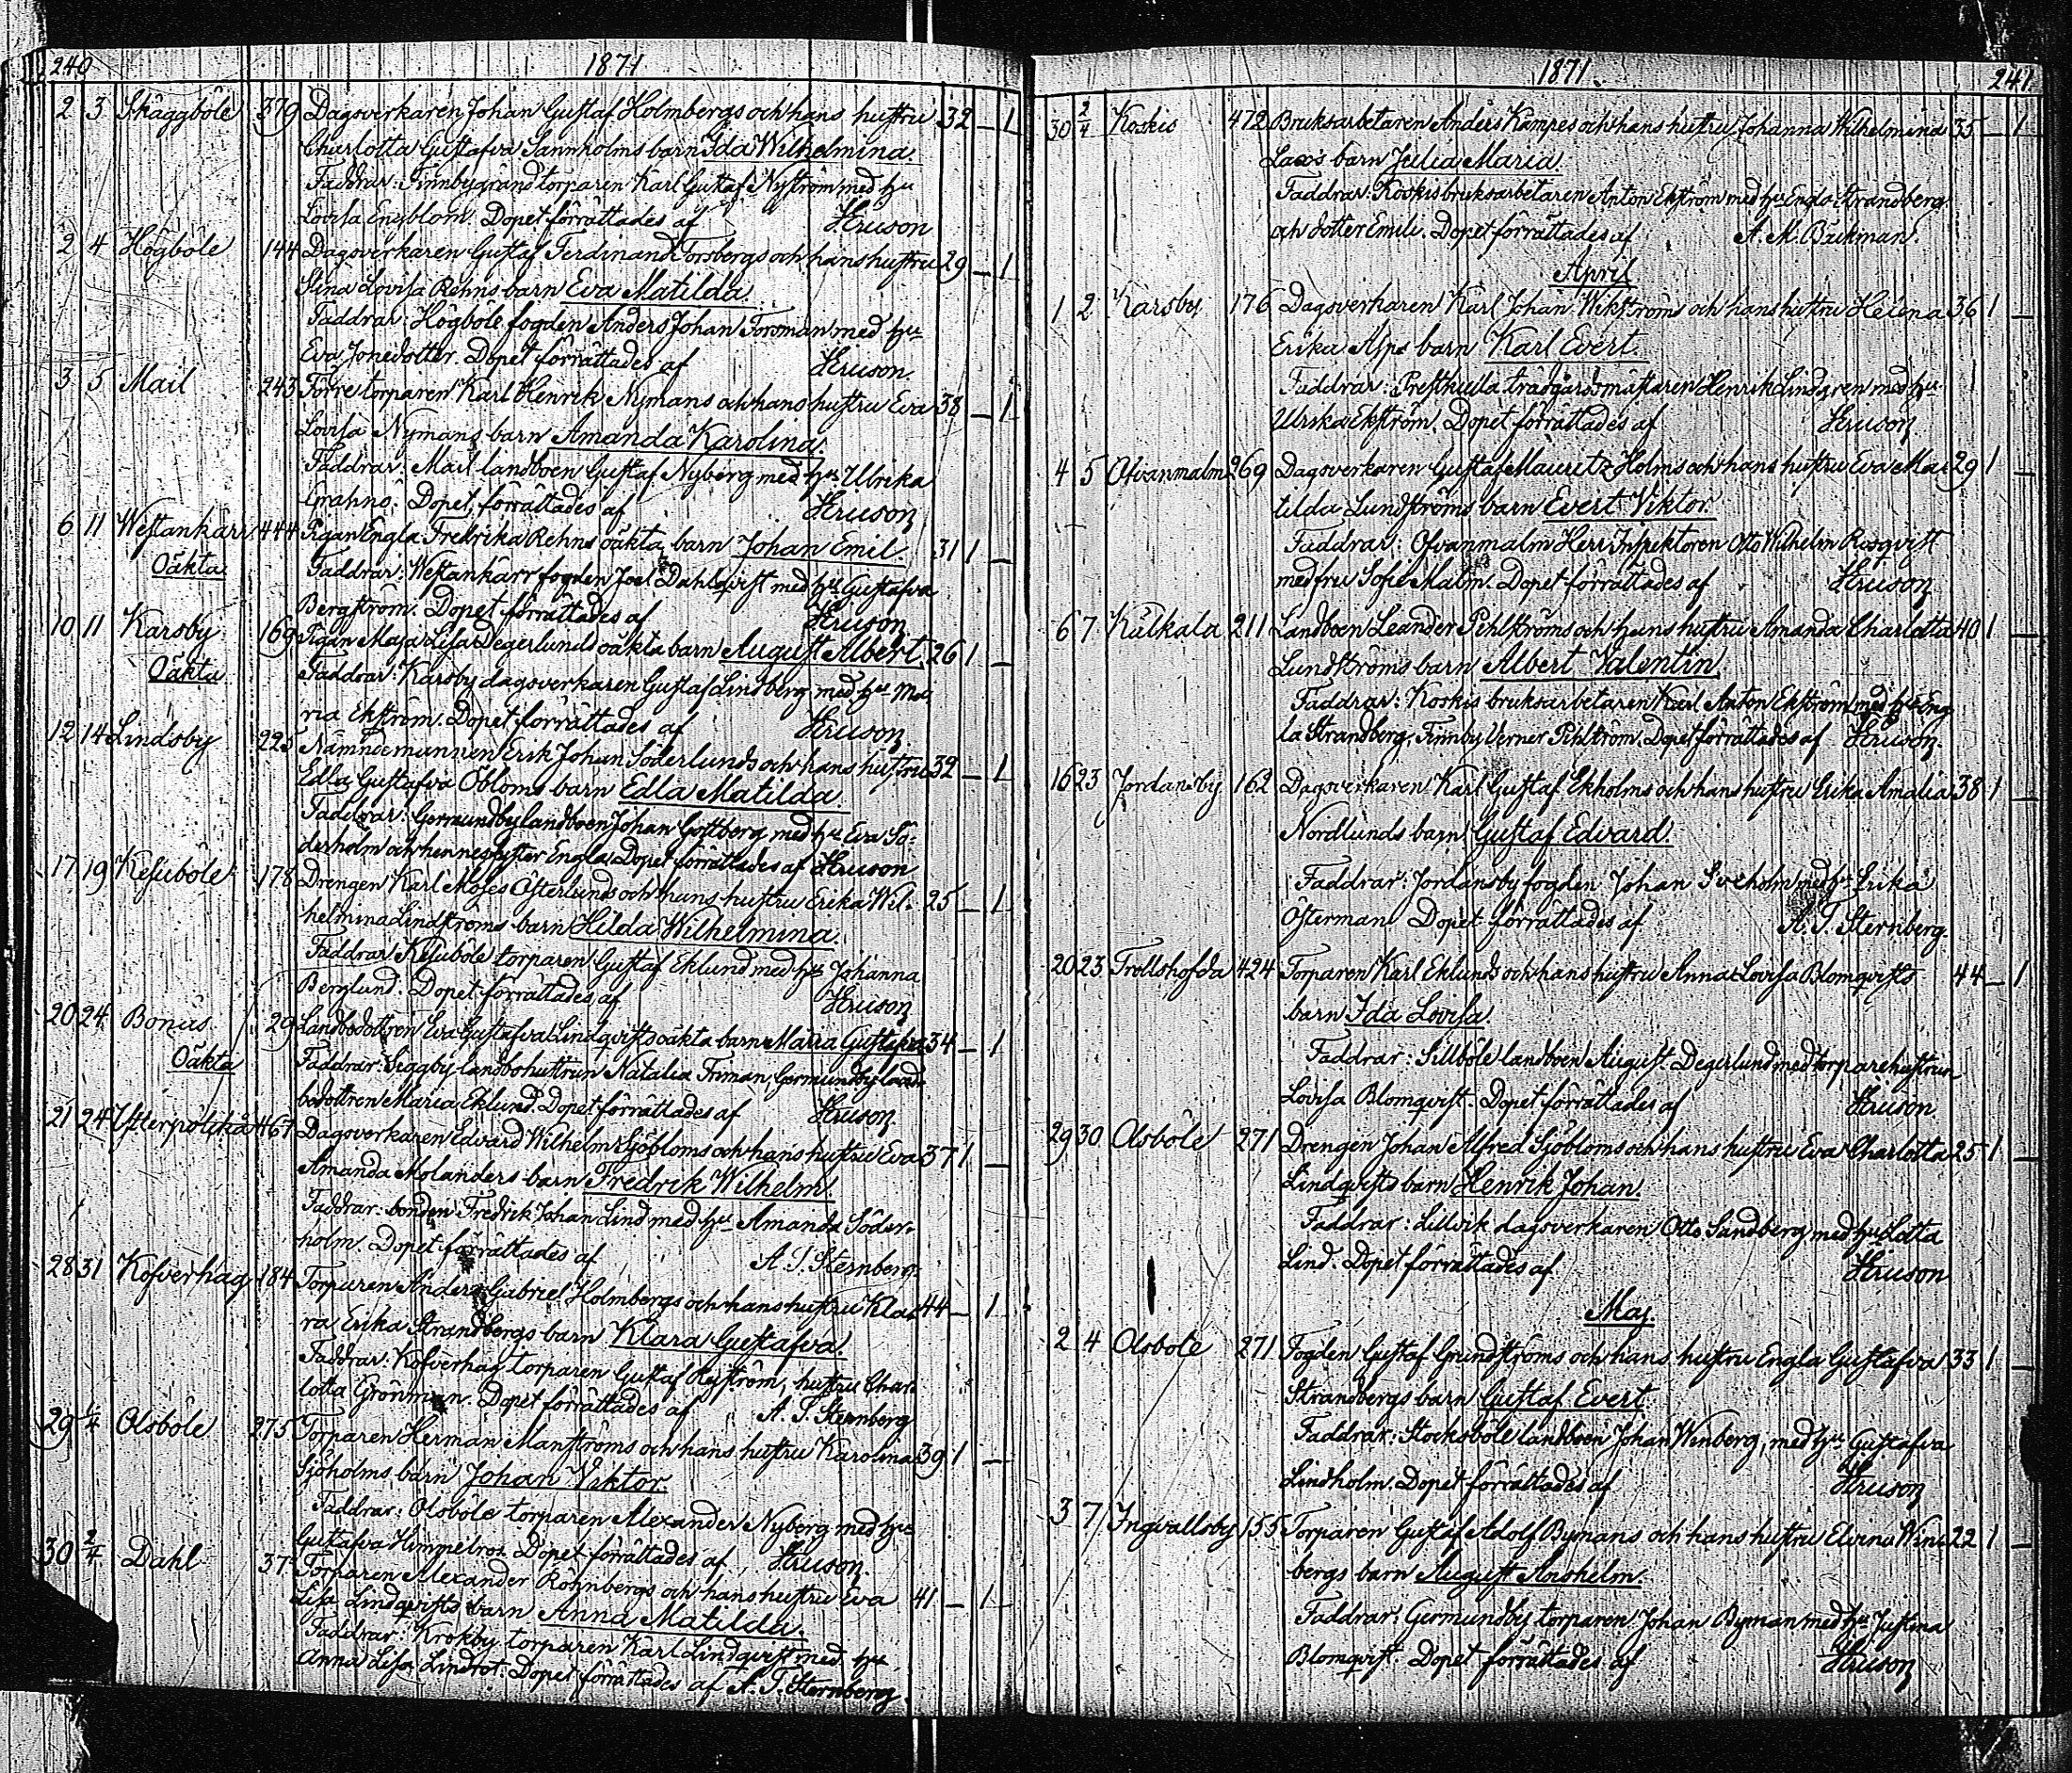 240 1871
2 3 Skäggböle 379 Dagsverkaren Johan Gustaf Holmbergs och hans hustru 32 – 1
Charlotta Gustafva Sannholms barn Ida Wilhelmina.
Faddrar: Finnbygränd torparen Karl Gustaf Nyström med hu
Lovisa Engblom. Dopet förrättades af
2 4 Högböle 144 Dagsverkaren Gustaf Ferdinand Forsbergs och hans hustru 29 – 1
Stina Lovisa Rehns barn Eva Matilda.
Faddrar: Högböle fogden Anders Johan Forsman med hu
Eva Jonedotter. Dopet förrättades af
3 5 Mail 243 Förre torparen Karl Henrik Nymans och hans hustru Eva 38 – 1
Lovisa Nymans barn Amanda Karolina.
Faddrar: Mail landboen Gustaf Nyberg med hu Ulrika
Grahnö. Dopet förrättades af
6 11 Westankärr 444 Pigan Engla Fredrika Rehns oäkta barn Johan Emil 31 1 –
Oäkta Faddrar: Westankärr fogden Joel Dahlqvist med hu Gustafva
Bergström. Dopet förrättades af
10 11 Karsby 169 Pigan Maja Lisa Degerlunds oäkta barn August Albert 26 1 –
Oäkta Faddrar: Karsby dagsverkaren Gustaf Lindberg med hu Ma-
ria Ekström. Dopet förrättades af
12 14 Lindsby 225 Nämndemannen Erik Johan Söderlunds och hans hustru 32 – 1
Edla Gustafva Obloms barn Edla Matilda.
Faddrar: Germundby landboen Johan Gottberg med hu Eva Sö-
derholm och hennes syster Engla. Dopet förrättades af
17 19 Kesuböle 178 Drengen Karl Moses Österlunds och hans hustru Erika Wil- 25 – 1
helmina Lindströms barn Hilda Wilhelmina.
Faddrar Kesuböle torparen Gustaf Eklund med hu Johanna
Berglund. Dopet förrättades af
20 24 Bonäs 29 Landbodottren Eva Gustafva Lindqvists oäkta barn Maria Gustafva 34 – 1
Oäkta Faddrar: Siggby landbohustrun Natalia Friman, Germundby land-
bodottren Maria Eklund. Dopet förrättades af
21 24 467 Dagsverkaren Edvard Wilhelm Sjöbloms och hans hustru Eva 37 1 –
Amanda Molanders barn Fredrik Wilhelm.
Faddrar: bonden Fredrik Johan Lind med hu Amanda Söder-
holm. Dopet förrättades af A. T. Sternberg.
28 31 Kofverhag 184 Torparen Anders Gabriel Holmbergs och hans hustru Kla- 44 – 1
ra Erika Strandbergs barn Klara Gustafva.
Faddrar: Kofverhag torparen Gustaf Reström, hustru Char-
lotta Grönman. Dopet förrättades af A. T. Sternberg
29 1/4 Olsböle 275 Torparen Herman Manströms och hans hustru Karolina 39 1 –
Sjöholms barn Johan Viktor.
Faddrar: Olsböle torparen Alexander Nyberg med hu
Gustafva Himmelros. Dopet förrättades af
30 2/4 Dahl 37 Torparen Alexander Röhnbergs och hans hustru Eva 41 – 1
Lisa Lindqvists barn Anna Matilda.
Faddrar: Krokby torparen Karl Lindqvist med hu
Anna Lisa Lindrot. Dopet förrättades af A. T. Sternberg.
1871. 241
30 2/4 Koskis 472 Bruksarbetaren Anders Kämpes och hans hustru Johanna Wilhelmina 35 – 1
Lax's barn Julia Maria.
Faddrar: Koskis bruksarbetaren Anton Ekström med hu Engla Strandberg
och dotter Emili. Dopet förrättades af A. M. Bäckman.
April
1 2 Karsby 176 Dagsverkaren Karl Johan Wikströms och hans hustru Helena 36 1 –
Erika Alps barn Karl Evert.
Faddrar: Prestkulla trädgårdsmästaren Henrik Lindgren med hu
Ulrika Ekström. Dopet förrättades af
4 5 Ofvanmalm 269 Dagsverkaren Gustaf Mauritz Holms och hans hustru Eva Ma- 29 1 –
tilda Lundströms barn Evert Viktor.
Faddrar: Ofvanmalm Herr Inspektoren Otto Wilhelm Rosqvist
med fru Sofie Malm. Dopet förrättades af
6 7 Kulkala 211 Landboen Leander Pihlströms och hans hustru Amanda Charlotta 40 1 –
Lundströms barn Albert Valentin.
Faddrar: Koskis bruksarbetaren Karl Anton Ekström med hu Eng-
la Strandberg, Finnby Verner Pihlström. Dopet förrättades af
16 23 Jordansby 162 Dagsverkaren Karl Gustaf Ekholms och hans hustru Erika Amalia 38 1 –
Nordlunds barn Gustaf Edvard.
Faddrar: Jordansby fogden Johan med hu Erika
Österman. Dopet förrättades af A. T. Sternberg.
20 23 Trollshofda 424 Torparen Karl Eklunds och hans hustru Anna Lovisa Blomqvists 44 – 1
barn Ida Lovisa.
Faddrar: Sillböle landboen August Degerlund med torparehustrun
Lovisa Blomqvist. Dopet förrättades af
29 30 Olsböle 271 Drengen Johan Alfred Sjöbloms och hans hustru Eva Charlotta 25 1 –
Lindqvists barn Henrik Johan.
Faddrar: Lillvik dagsverkaren Otto Sundberg med hu Lotta
Lind. Dopet förrättades af
Maj.
2 4 Olsböle 271 Fogden Gustaf Grundströms och hans hustru Engla Gustafva 33 1 –
Strandbergs barn Gustaf Evert
Faddrar: Stocksböle landboen Johan Winberg, med hu Gustafva
Lindholm. Dopet förrättades af
3 7 Ingvallsby 155 Torparen Gustaf Adolf Bymans och hans hustru Elvina Win- 22 1 –
bergs barn August Anshelm.
Faddrar: Germundby torparen Johan Byman med hu Justina
Blomqvist. Dopet förrättades af